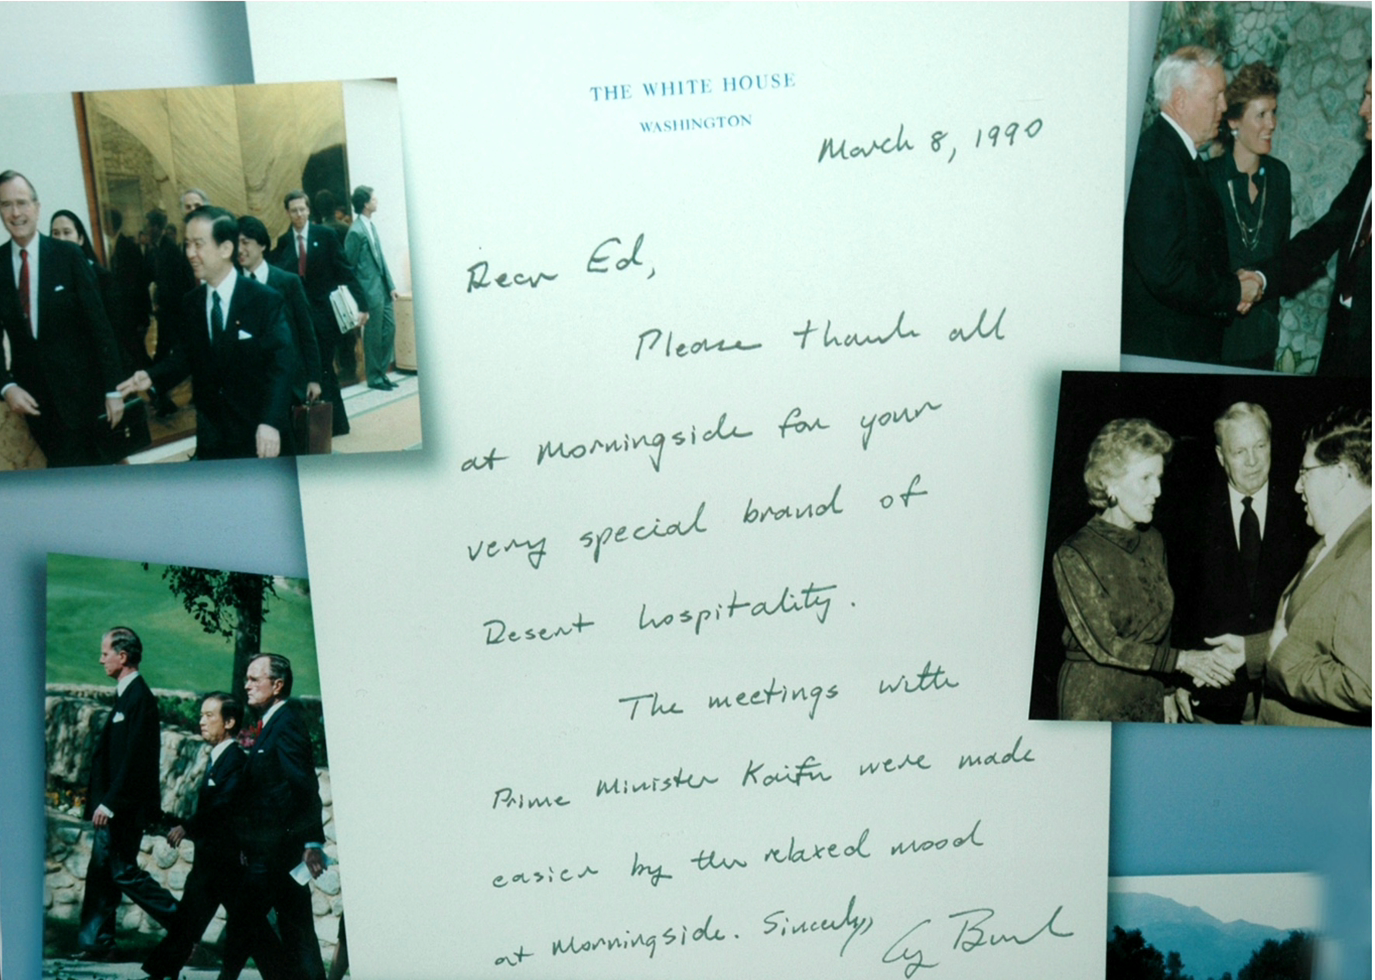 THE WHITE HOUSE
WASHINGTON
March 8, 1990
Dear Ed,
Please thank all
at Morningside for your
very special brand of
Desert hospitality.
The meetings with
Prime Minister Kaifu were made
easier by the relaxed mood
at Morningside. Sincerely,
G Bush